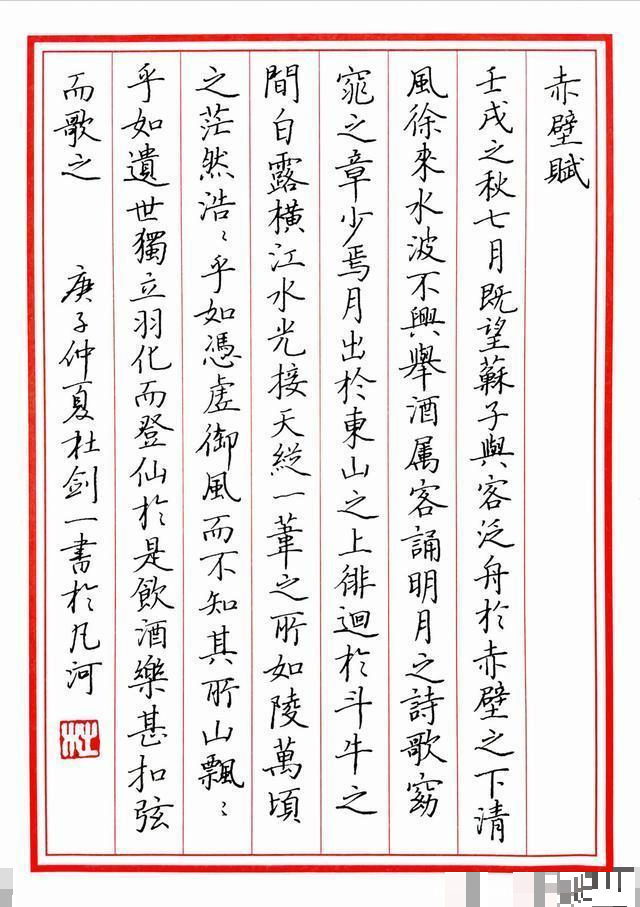 赤壁賦
壬戌之秋七月既望蘇子與客泛舟於赤壁之下清
風徐來水波不興舉酒属客誦明月之詩歌窈
窕之章少焉月出於東山之上徘迴於斗牛之
間白露橫江水光接天縱一葦之所如陵萬頃
之茫然浩〻乎如憑虛御風而不知其所止飄〻
乎如遺世獨立羽化而登仙於是飲酒樂甚扣弦
而歌之 庚子仲夏杜剑一書於凡河
杜